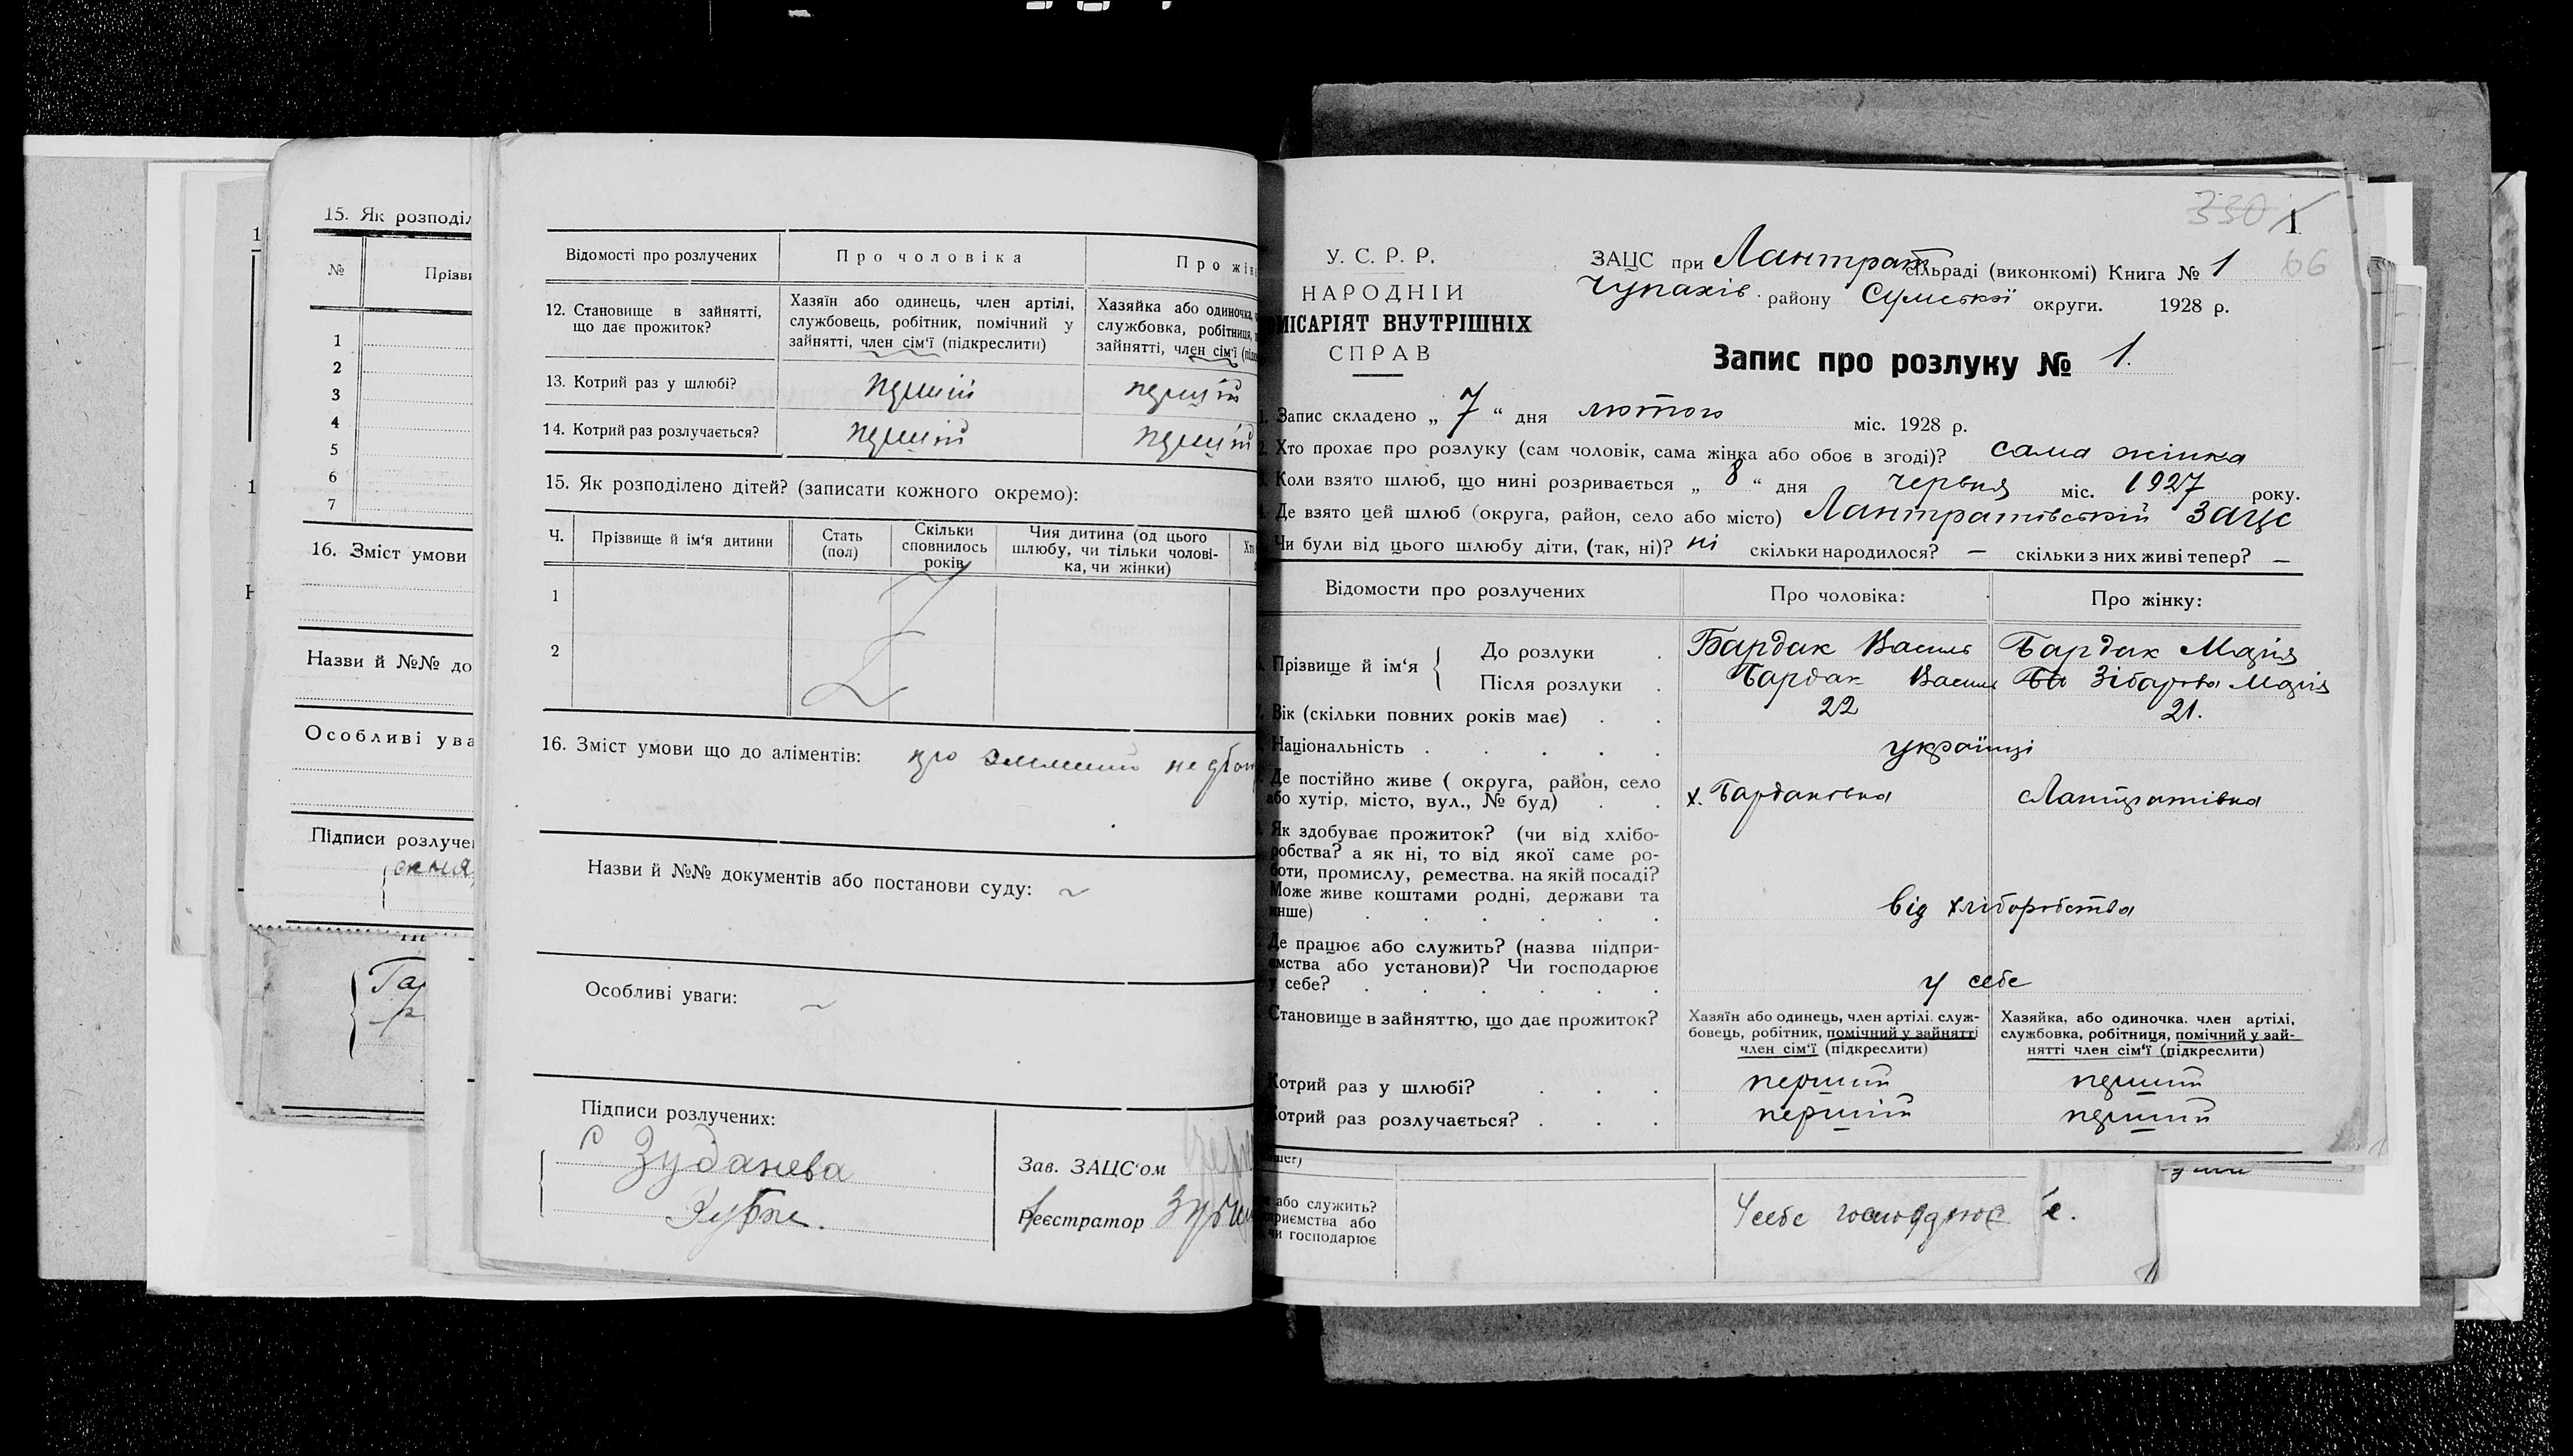 15. Як розподіл
№
Прізви
1
2
3
4
5
6
7
16. Зміст умови
Назви й №№ до
Особливі ува
Підписи розлуче
Відомості про розлучених
Про чоловіка
Про жін
12. Становище в зайнятті,
що дає прожиток?
Хазяїн або одинець, член артілі,
службовець, робітник, помічний у
зайнятті, член сім'ї (підкреслити)
Хазяйка або одиночка,
службовка, робітниця,
зайнятті, член сім'ї
13. Котрий раз у шлюбі?
перший
перший
14. Котрий раз розлучається?
перший
перший
15. Як розподілено дітей? (записати кожного окремо):
Ч.
Прізвище й ім'я дитини
Стать
(пол)
Скільки
сповнилось
років
Чия дитина (од цього
шлюбу, чи тільки чолові-
ка, чи жінки)
1
2
16. Зміст умови що до аліментів: про
Назви й №№ документів або постанови суду: ~
Особливі уваги: ~
Підписи розлучених:
Зуданева
Зав. ЗАЦС'ом
Реєстратор
330
1
66
У. С. Р. Р.
НАРОДНІЙ
МІСАРІЯТ ВНУТРІШНІХ
СПРАВ
ЗАЦС при Лантрат сільраді (виконкомі) Книга № 1
Чупахів. району Сумської округи. 1928 р.
Запис про розлуку № 1.
1. Запис складено „ 7 “ дня лютого міс. 1928 р.
2. Хто прохає про розлуку (сам чоловік, сама жінка або обоє в згоді)? сама жінка
Коли взято шлюб, що нині розривається „ 8 “ дня червня міс. 1927 року.
Де взято цей шлюб (округа, район, село або місто) Лантратівській ЗАЦС
Чи були від цього шлюбу діти, (так, ні)? ні скільки народилося? — скільки з них живі тепер? —
Відомости про розлучених
Про чоловіка:
Про жінку:
Прізвище й ім'я
До розлуки
Бардак Василь
Бардак Марія
Після розлуки
Бардак Василь
Ба Зібарова Марія
Вік (скільки повних років має)
22
21.
Національність
українці
Де постійно живе ( округа, район, село
або хутір, місто, вул., № буд)
х. Бардаківка
Лантратівка
Як здобуває прожиток? (чи від хлібо-
робства? а як ні, то від якої саме ро-
боти, промислу, ремества. на якій посаді?
Може живе коштами родні, держави та
инше)
від хліборобства
Де працює або служить? (назва підпри-
ємства або установи)? Чи господарює
у себе?
у себе
Становище в зайняттю, що дає прожиток?
Хазяїн або одинець, член артілі. служ-
бовець, робітник, помічний у зайнятті
член сім'ї (підкреслити)
Хазяйка, або одиночка. член артілі,
службовка, робітниця, помічний у зай-
нятті член сім'ї (підкреслити)
Котрий раз у шлюбі?
перший
перший
Котрий раз розлучається?
перший
перший
або служить?
приємства або
чи господарює
У себе